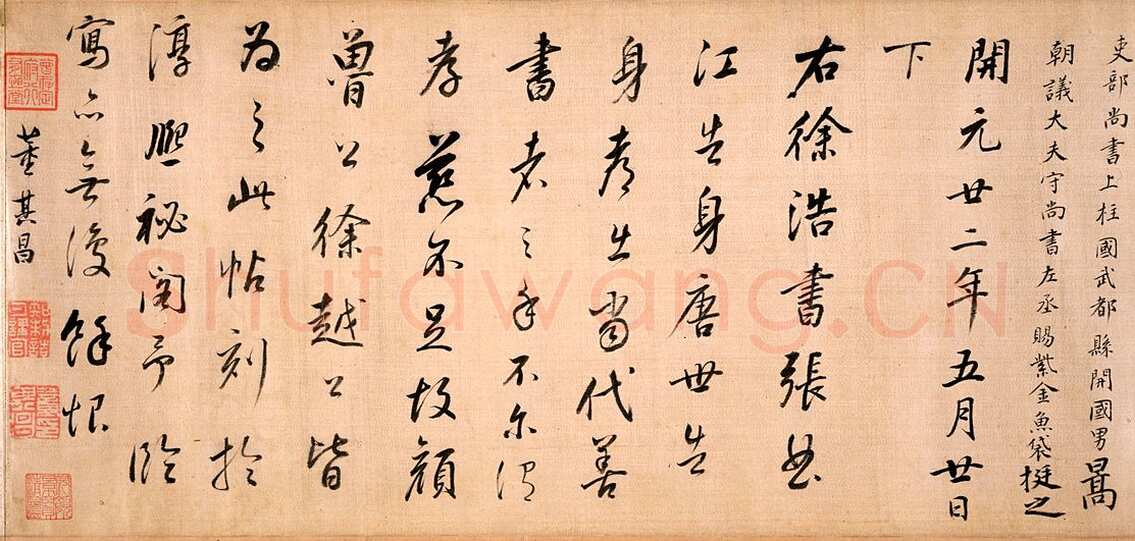 吏部尚書上柱國武都縣開國男暠
朝議大夫守尚書左丞賜紫金魚袋挺之
開元廿二年五月廿日
下
右徐浩書張曲
江告身唐世告
身出當代善
書者之手不爾謂
孝慈不足故顏
魯公徐越公皆
為之此帖刻於
淳熙秘閣予臨
寫亦無復餘恨
董其昌
知制誥日講官
Shufawang.CN